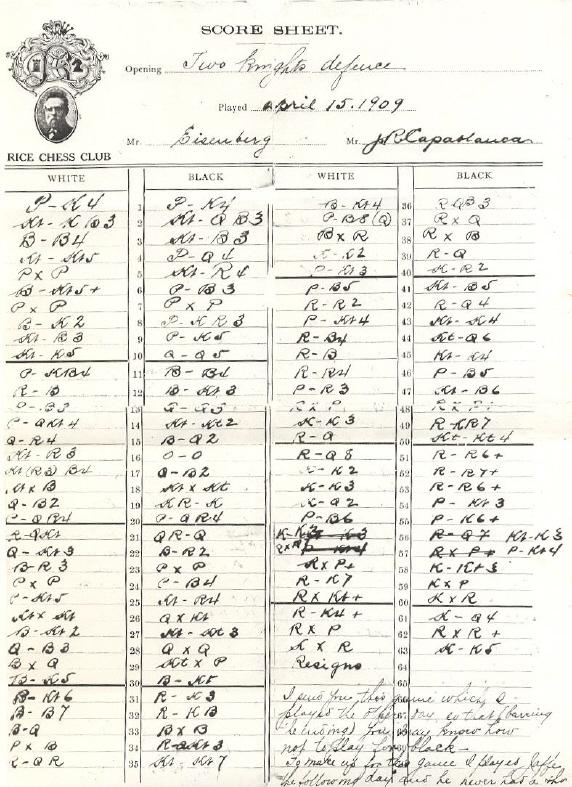 SCORE SHEET.
Opening Two Knights defence
Played April 15. 1909
Mr. Eisenberg Mr. J R Capablanca
RICE CHESS CLUB
WHITE BLACK WHITE BLACK
P-K4 1 P-K4 B-Kt4 36 R-QB3
Kt-KB3 2 Kt-QB3 P-B8(Q) 37 R x Q
B-B4 3 Kt-B3 B x R 38 R x B
Kt-Kt5 4 P-Q4 K-K2 39 R-Q
P x P 5 Kt-R4 P-Kt3 40 K-R2
B-Kt5+ 6 P-B3 P-B5 41 Kt-B5
P x P 7 P x P R-R2 42 R-Q4
B-K2 8 P-KR3 P-Kt4 43 Kt-K4
Kt-B3 9 P-K5 R-B4 44 Kt-Q6
Kt-K5 10 Q-Q5 R-B 45 Kt-K4
P-KB4 11 B-B4 R-R4 46 P-B5
R-B 12 B-Kt3 P-R3 47 Kt-B6
P-B3 13 R x P 48
P-QKt4 14 Kt-Kt2 K-K3 49 R-KR7
Q-R4 15 B-Q2 R-Q 50 Kt-Kt4
Kt-R3 16 O-O R-Q8 51 R-R6+
Kt(R3) B4 17 Q-B2 K-K2 52 R-R7+
Kt x B 18 Kt x Kt K-K3 53 R-R6+
Q-B2 19 KR-K K-Q2 54 P-Kt3
20 P-QR4 P-B6 55 P-K6+
R-QKt 21 QR-Q 56 R-Q7 Kt-K3
Q-Kt3 22 B-R2 57 R x P+ P-Kt4
B-R3 23 P x P R x P+ 58 K-Kt3
P x P 24 P-B4 R-K7 59 K x P
P-Kt5 25 Kt-R4 R x Kt+ 60 K x R
Kt x Kt 26 Q x Kt R-K4+ 61 K-Q4
B-Kt2 27 Kt-Kt3 R x P 62 R x R+
Q-B3 28 Q x Q K x R 63 K-K5
B x Q 29 Kt x P Resigns 64
B-K5 30 B-K5
B-Kt6 31 R-K3 I send you this game which I
B-B7 32 R-KB played the other day so that (barring
B-Q 33 B x B you may know how
P x B 34 not to play black-
R-QR 35 Kt-Kt7 To make up for this game I played Jaffe
the following day and he never had a